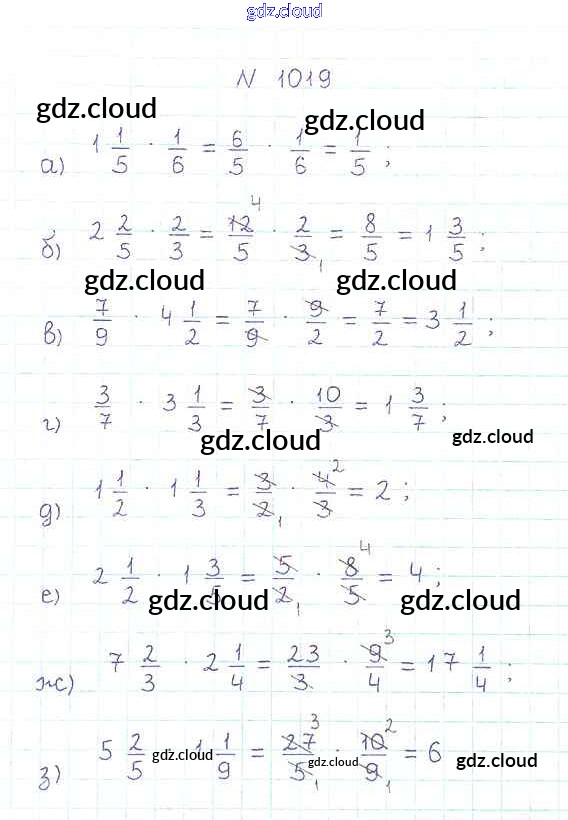 gdz.cloud
N 1019
gdz.cloud gdz.cloud
а) 1 1/5 · 1/6 = 6/5 · 1/6 = 1/5 ;
б) 2 2/5 · 2/3 = 12/5 4 · 2/3 1 = 8/5 = 1 3/5 ;
gdz.cloud gdz.cloud
в) 7/9 · 4 1/2 = 7/9 · 9/2 = 7/2 = 3 1/2 ;
г) 3/7 · 3 1/3 = 3/7 · 10/3 = 1 3/7 ;
gdz.cloud gdz.cloud
д) 1 1/2 · 1 1/3 = 3/2 1 · 4/3 2 = 2 ;
е) 2 1/2 · 1 3/5 = 5/2 1 · 8/5 4 = 4 ;
gdz.cloud gdz.cloud
ж) 7 2/3 · 2 1/4 = 23/3 · 9/4 3 = 17 1/4 ;
з) 5 2/5 · 1 1/9 = 27/5 3 1 · 10/9 2 1 = 6
gdz.cloud gdz.cloud gdz.cloud